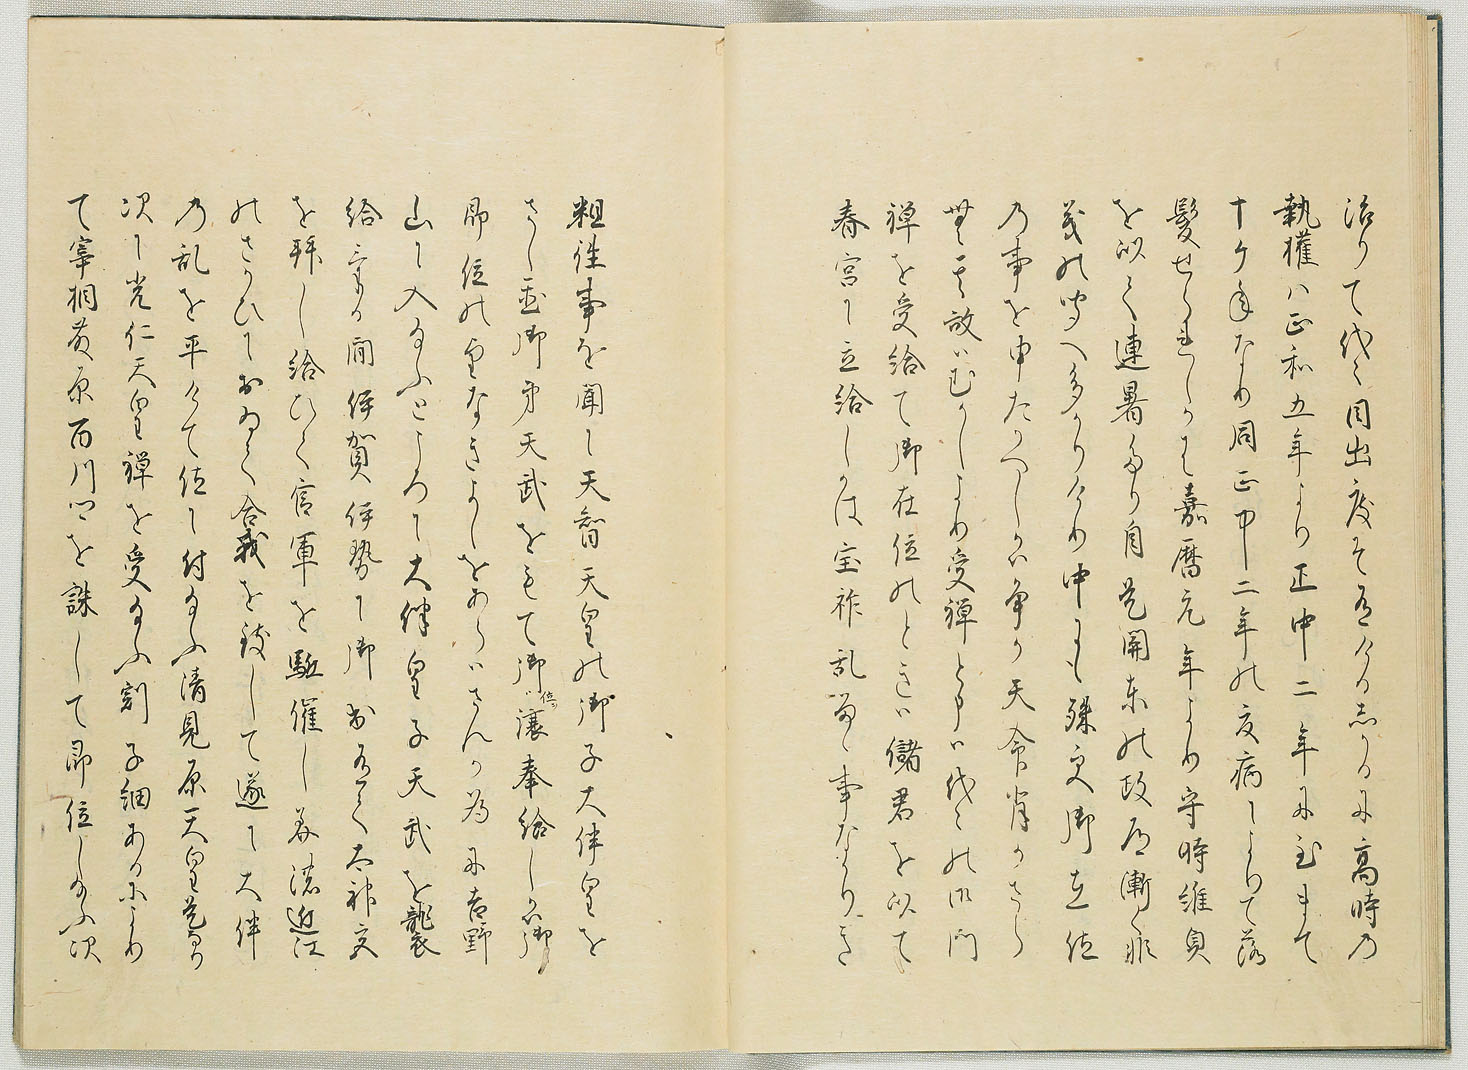 治りて代々目出度そ有けるしかるに高時の
執権ハ正和五年より正中二年に至まて
十ケ年なり同正中二年の夏病によりて落
髪せられしかは嘉暦元年より守時維貞
を以て連署たり自是関東の政道漸く非
義の聞へ多かりけり中にも殊更御在位
の事を申たかへしかは争か天命背かさら
無其故いむかしより受禅と申ハ代々の御門
禅を受給て御在位のときハ儲君を以て
春宮に立給しかは宝祚乱るゝ事なかりき
粗往事を聞に天智天皇の御子大伴皇を
さし置御弟天武をもて御位ハ譲奉給しかハ御
即位の望なきよしをあらハさんか為に吉野
山に入給ふところに大伴皇子天武を襲
給ける間伊賀伊勢に御出有て太神宮
を拝し給ひて官軍を駈催し美濃近江
のさかひにおゐて合戦を致して遂に大伴
の乱を平けて位に付給ふ清見原天皇是なり
次に光仁天皇禅を受給ふ剋子細あるによりて
て宰相藤原百川以下を誅して即位し給ふ次